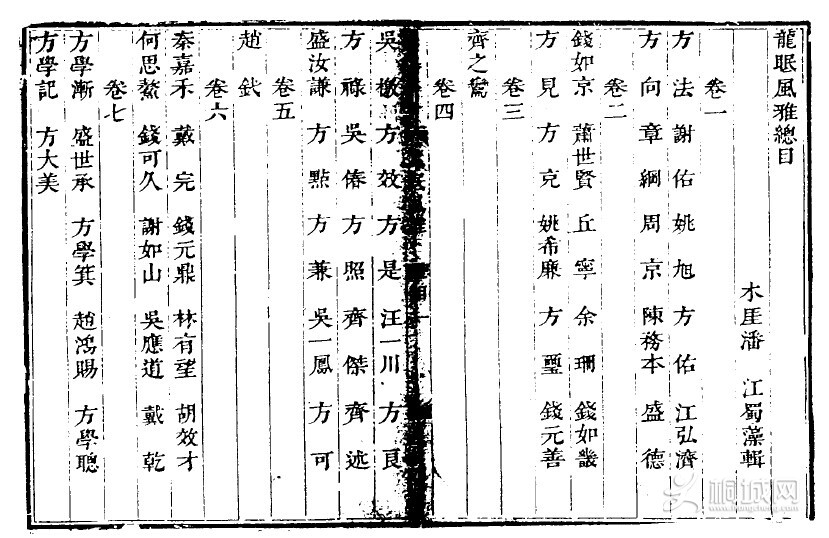 龍眠風雅總目
木厓潘 江蜀藻輯
卷一
方 法 謝 佑 姚 旭 方 佑 江弘濟
方 向 章 綱 周 京 陳務本 盛 德
卷二
錢如京 蕭世賢 丘 寧 余 珊 錢如畿
方 見 方 克 姚希廉 方 璽 錢元善
卷三
齊之鸞
卷四
吳 檄 方 效 方 是 汪一川 方 良
方 祿 吳 偆 方 照 齊 傑 齊 述
盛汝謙 方 點 方 兼 吳一鳳 方 可
卷五
趙 釴
卷六
秦嘉禾 戴 完 錢元鼎 林有望 胡效才
何思鰲 錢可久 謝如山 吳應道 戴 乾
卷七
方學漸 盛世承 方學箕 趙鴻賜 方學聰
方學記 方大美
桐城网